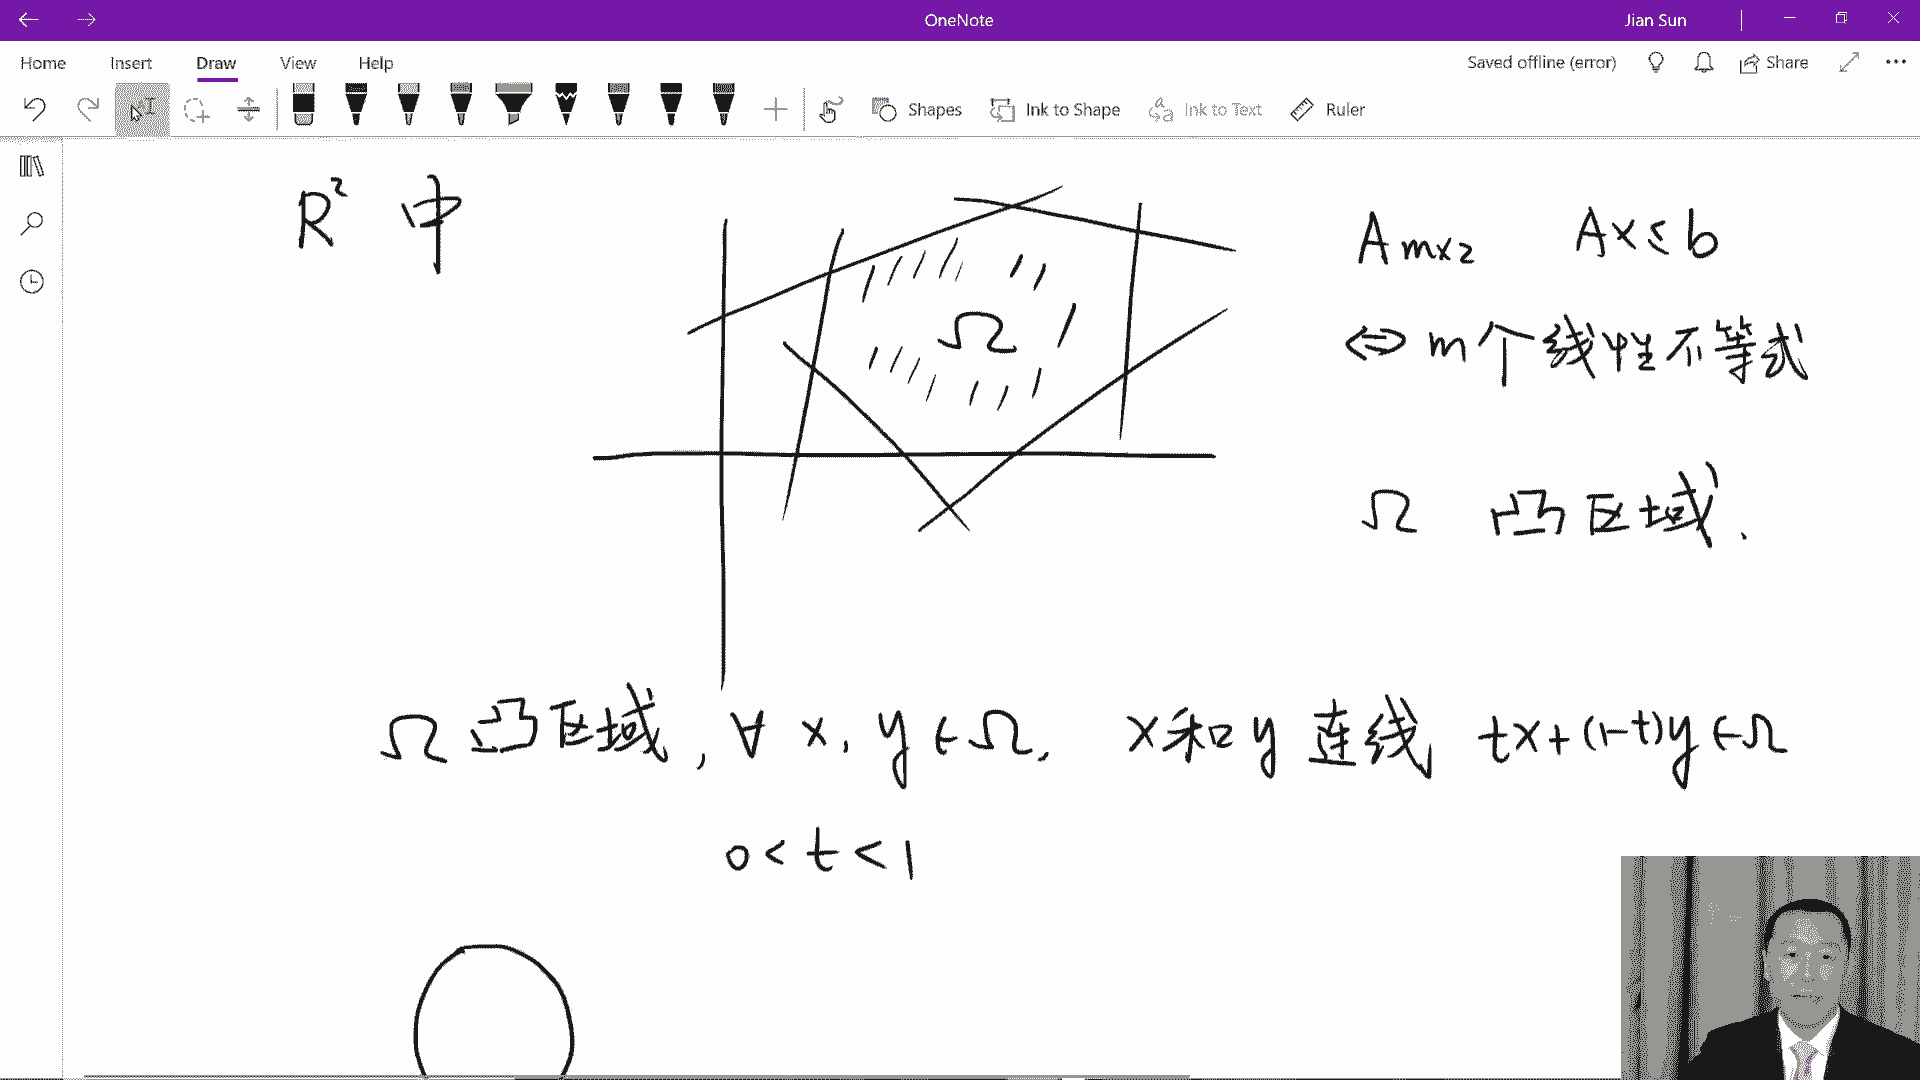 OneNote
Jian Sun
Home Insert Draw View Help
Saved offline (error)
Share
Shapes
Ink to Shape
Ink to Text
Ruler
R² 中
Ω
A m×2 Ax ≤ b
⇔ m个线性不等式
Ω 凸区域.
Ω 凸区域, ∀ x, y ∈ Ω. x和y连线 tx+(1-t)y ∈ Ω
0 < t < 1